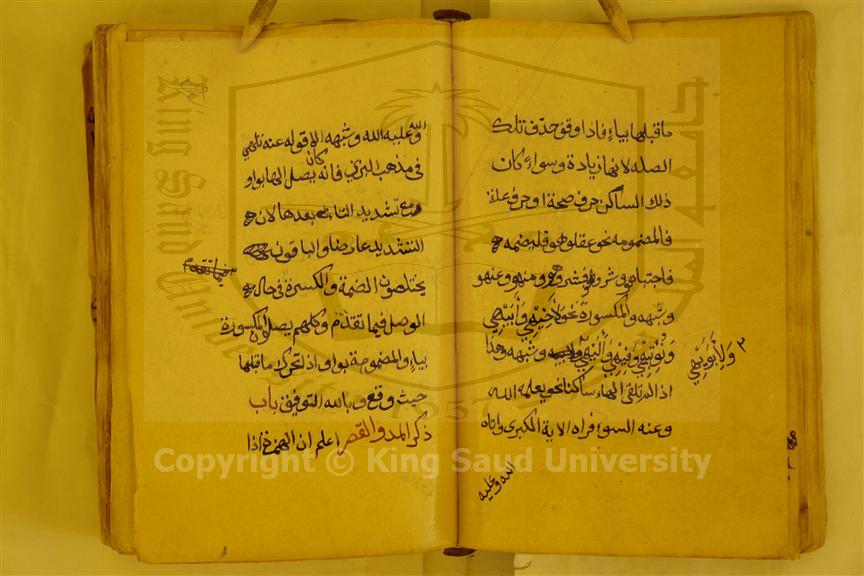 ما قبلها بياء فاذا وقف حذف تلك
الصله لانها زيادة وسواء كان
ذلك الساكن حرف صحة او حرف علة
فالمضمومه نحو عقلوهو قلبضمه
فاجتباهو وشروهو فبشرهو ومنهو وعنهو
وشبهه والمكسورة نحو لاخيهي وأبيهي
ونؤتيهي وفيهي وأليهي وشبهه وهذا
اذا لم تلقى الهاء ساكنا نحو يعلمه الله
وعنه السوء فراه الاية الكبرى واتاه
٢ ولأبويهي
الله وعليه
الله وعليه الله وشبهه الا قوله عنه تلهي
في مذهب البزي فانه كان يصل الها بواو
مع تشديد التا بعدها لان
التشديد عارض والباقون
يختلصون الضمة والكسرة في حال
الوصل فيما تقدم وكلهم يصل المكسورة
بياء والمضمومة بواو اذا تحرك ما قبلها
حيث وقع وبالله التوفيق باب
ذكر المد والقصر اعلم ان الهمزة اذا
فيما تقدم
جامعة الملك
King Saud Unive
1957
Copyright © King Saud University